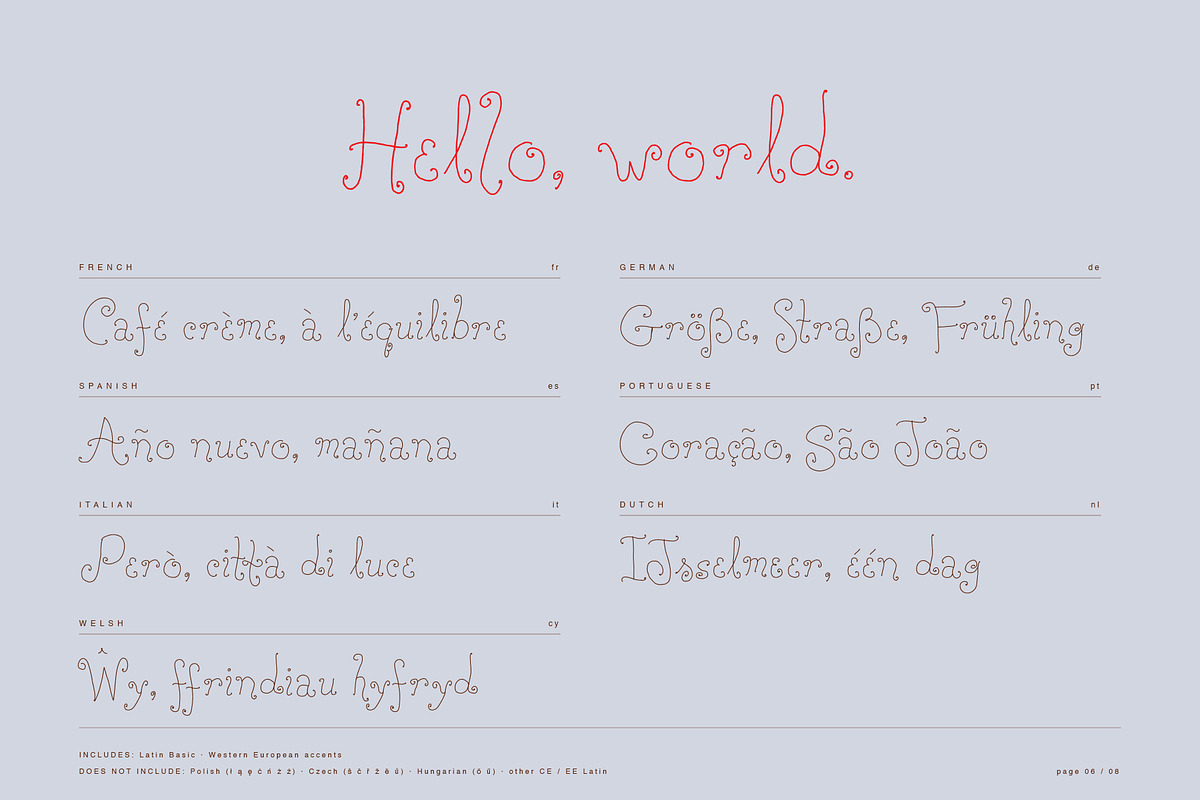 Hello, world.
FRENCH fr
Café crème, à l'équilibre
GERMAN de
Größe, Straße, Frühling
SPANISH es
Año nuevo, mañana
PORTUGUESE pt
Coração, São João
ITALIAN it
Però, città di luce
DUTCH nl
IJsselmeer, één dag
WELSH cy
Ŵy, ffrindiau hyfryd
INCLUDES: Latin Basic · Western European accents
DOES NOT INCLUDE: Polish (ł ą ę ć ń ż ź) · Czech (š č ř ž ě ů) · Hungarian (ő ű) · other CE / EE Latin
page 06 / 08